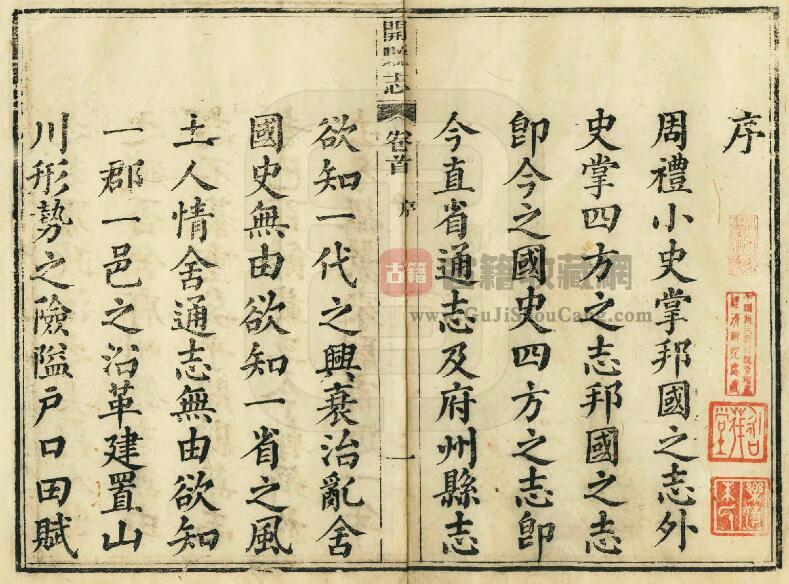 序
周禮小史掌邦國之志外
史掌四方之志邦國之志
卽今之國史四方之志卽
今直省通志及府州縣志
開縣志
卷首
序
一
欲知一代之興衰治亂舍
國史無由欲知一省之風
土人情舍通志無由欲知
一郡一邑之沿革建置山
川形勢之險隘戸口田賦
古籍
古籍收藏網
www.GuJiShouCang.com